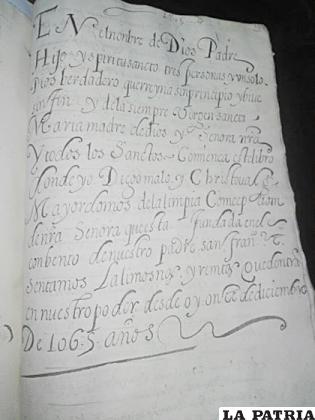 En el nonbre de Dios Padre
Hijo y spiritu sancto tres personas y un solo
Dios berdadero que reyna sin principio y bive
sin fin y de la siempre Virgen sancta
Maria madre de dios y Senora nra
Y todos los Sanctos Comienca este libro
donde yo Diego malo y Christoval
Mayordomos de la limpia Concepcion
de nra Senora que esta fundada en el
conbento de nuestro padre san fran
sentamos La limosna y rentas Que dentra
en nuestro poder desde oy onze de diciembre
De 1065 años
LA PATRIA